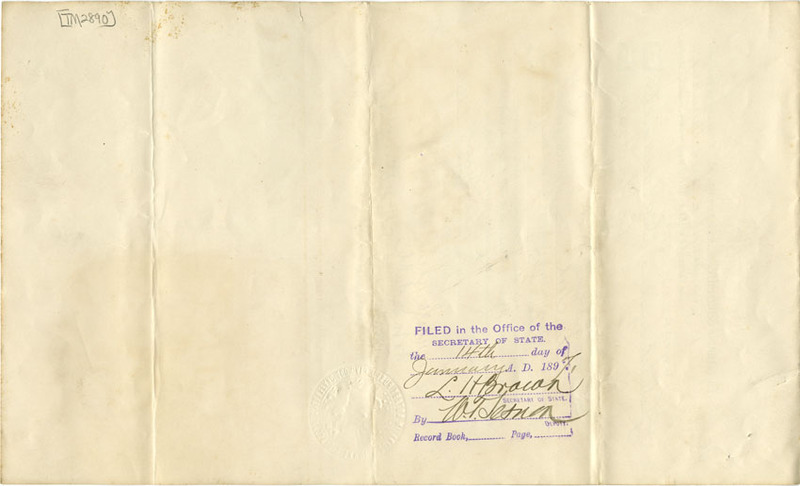 [TM2890]
FILED in the Office of the
SECRETARY OF STATE.
the 14th day of
January A. D. 1897,
L. H. Brown
SECRETARY OF STATE.
By
DEPUTY.
Record Book, Page,